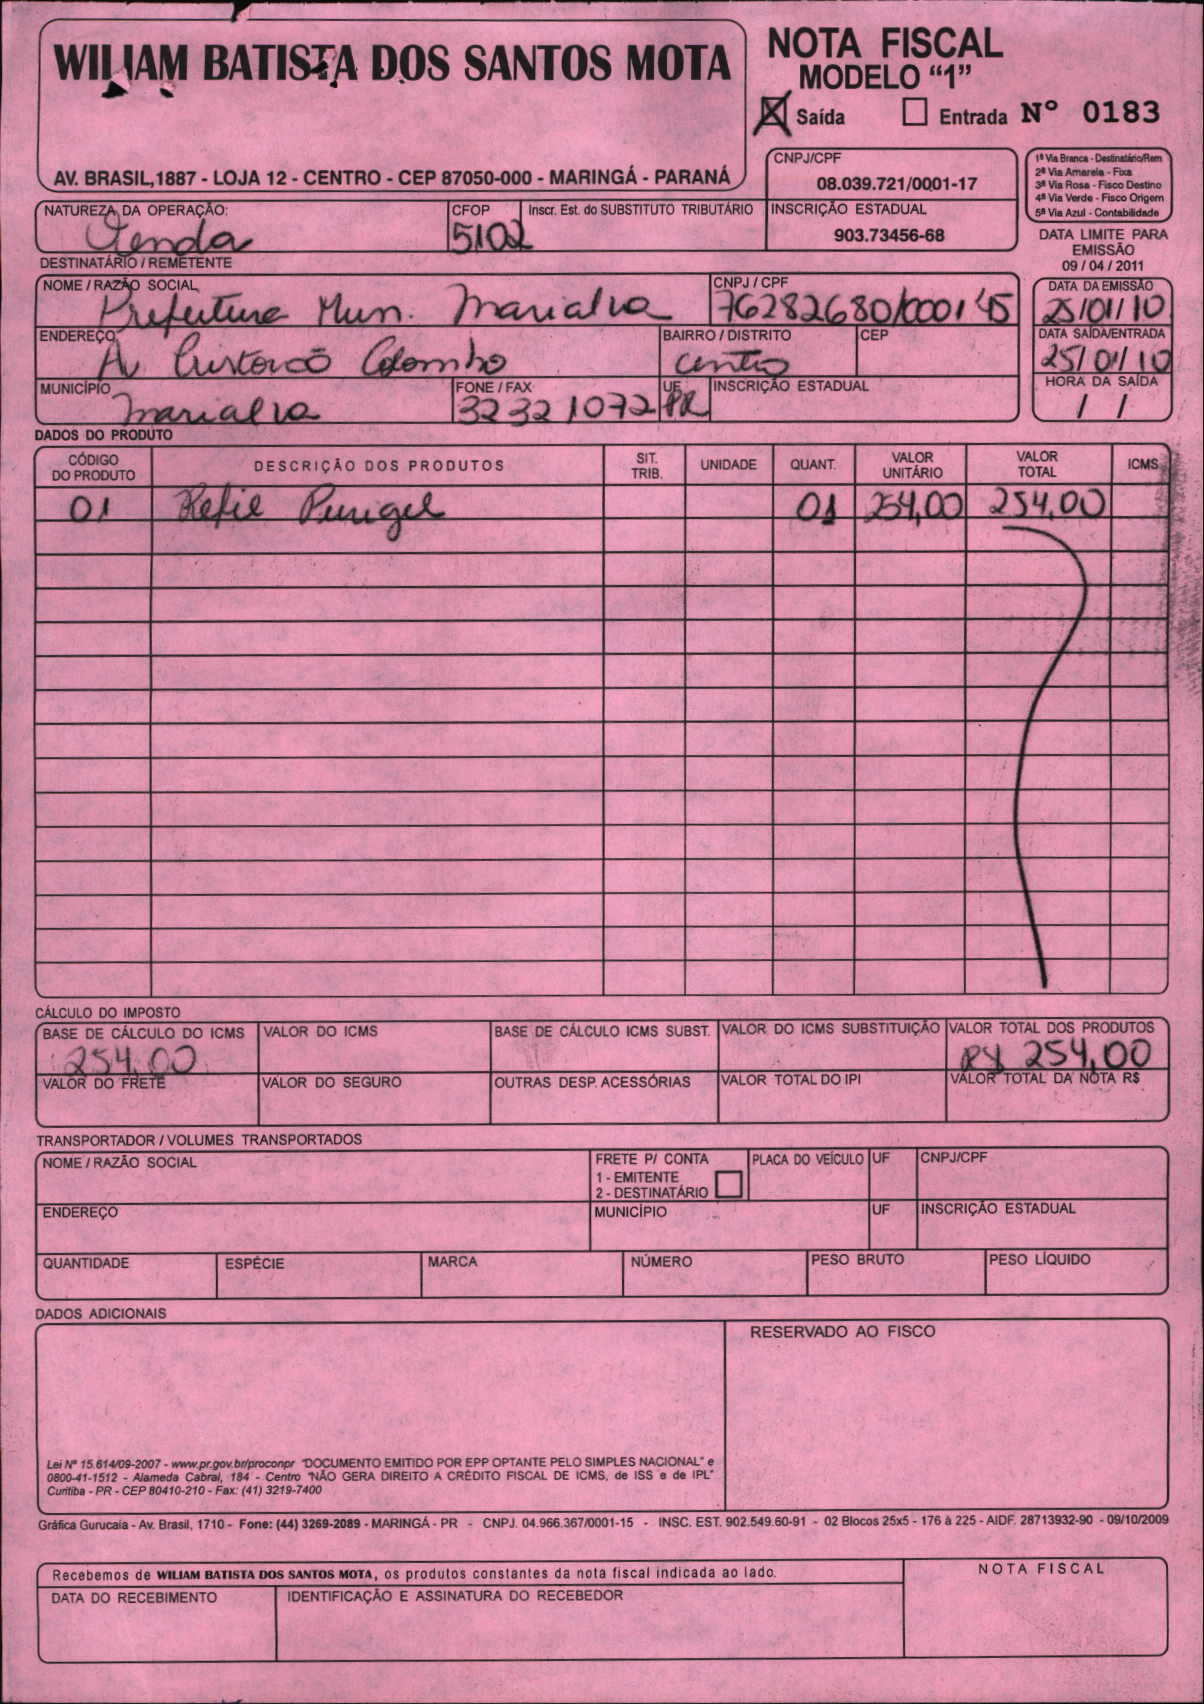 WILIAM BATISTA DOS SANTOS MOTA
AV. BRASIL,1887 - LOJA 12 - CENTRO - CEP 87050-000 - MARINGÁ - PARANÁ
NOTA FISCAL
MODELO “1”
X Saída Entrada Nº 0183
CNPJ/CPF
08.039.721/0001-17
INSCRIÇÃO ESTADUAL
903.73456-68
1ª Via Branca - Destinatário/Rem
2ª Via Amarela - Fixa
3ª Via Rosa - Fisco Destino
4ª Via Verde - Fisco Origem
5ª Via Azul - Contabilidade
DATA LIMITE PARA
EMISSÃO
09 / 04 / 2011
NATUREZA DA OPERAÇÃO: CFOP Inscr. Est. do SUBSTITUTO TRIBUTÁRIO
Venda 5102
DESTINATÁRIO / REMETENTE
NOME / RAZÃO SOCIAL CNPJ / CPF DATA DA EMISSÃO
Prefeitura Mun. Marialva 76282680/0001 45 25/01/10
ENDEREÇO BAIRRO / DISTRITO CEP DATA SAÍDA/ENTRADA
Av Cristovão Colombo centro 25/01/10
MUNICÍPIO FONE / FAX UF INSCRIÇÃO ESTADUAL HORA DA SAÍDA
Marialva 3232 1072 PR / /
DADOS DO PRODUTO
CÓDIGO DO PRODUTO DESCRIÇÃO DOS PRODUTOS SIT. TRIB. UNIDADE QUANT. VALOR UNITÁRIO VALOR TOTAL ICMS
01 Refil Purigel 01 254,00 254,00
CÁLCULO DO IMPOSTO
BASE DE CÁLCULO DO ICMS VALOR DO ICMS BASE DE CÁLCULO ICMS SUBST. VALOR DO ICMS SUBSTITUIÇÃO VALOR TOTAL DOS PRODUTOS
254,00 R$ 254,00
VALOR DO FRETE VALOR DO SEGURO OUTRAS DESP. ACESSÓRIAS VALOR TOTAL DO IPI VALOR TOTAL DA NOTA R$
TRANSPORTADOR / VOLUMES TRANSPORTADOS
NOME / RAZÃO SOCIAL FRETE P/ CONTA PLACA DO VEÍCULO UF CNPJ/CPF
1 - EMITENTE
2 - DESTINATÁRIO
ENDEREÇO MUNICÍPIO UF INSCRIÇÃO ESTADUAL
QUANTIDADE ESPÉCIE MARCA NÚMERO PESO BRUTO PESO LÍQUIDO
DADOS ADICIONAIS
RESERVADO AO FISCO
Lei Nº 15.614/09-2007 - www.pr.gov.br/proconpr "DOCUMENTO EMITIDO POR EPP OPTANTE PELO SIMPLES NACIONAL" e
0800-41-1512 - Alameda Cabral, 184 - Centro "NÃO GERA DIREITO A CRÉDITO FISCAL DE ICMS, de ISS e de IPI."
Curitiba - PR - CEP 80410-210 - Fax: (41) 3219-7400
Gráfica Gurucaia - Av. Brasil, 1710 - Fone: (44) 3269-2089 - MARINGÁ - PR - CNPJ. 04.966.367/0001-15 - INSC. EST. 902.549.60-91 - 02 Blocos 25x5 - 176 à 225 - AIDF. 28713932-90 - 09/10/2009
Recebemos de WILIAM BATISTA DOS SANTOS MOTA, os produtos constantes da nota fiscal indicada ao lado. NOTA FISCAL
DATA DO RECEBIMENTO IDENTIFICAÇÃO E ASSINATURA DO RECEBEDOR